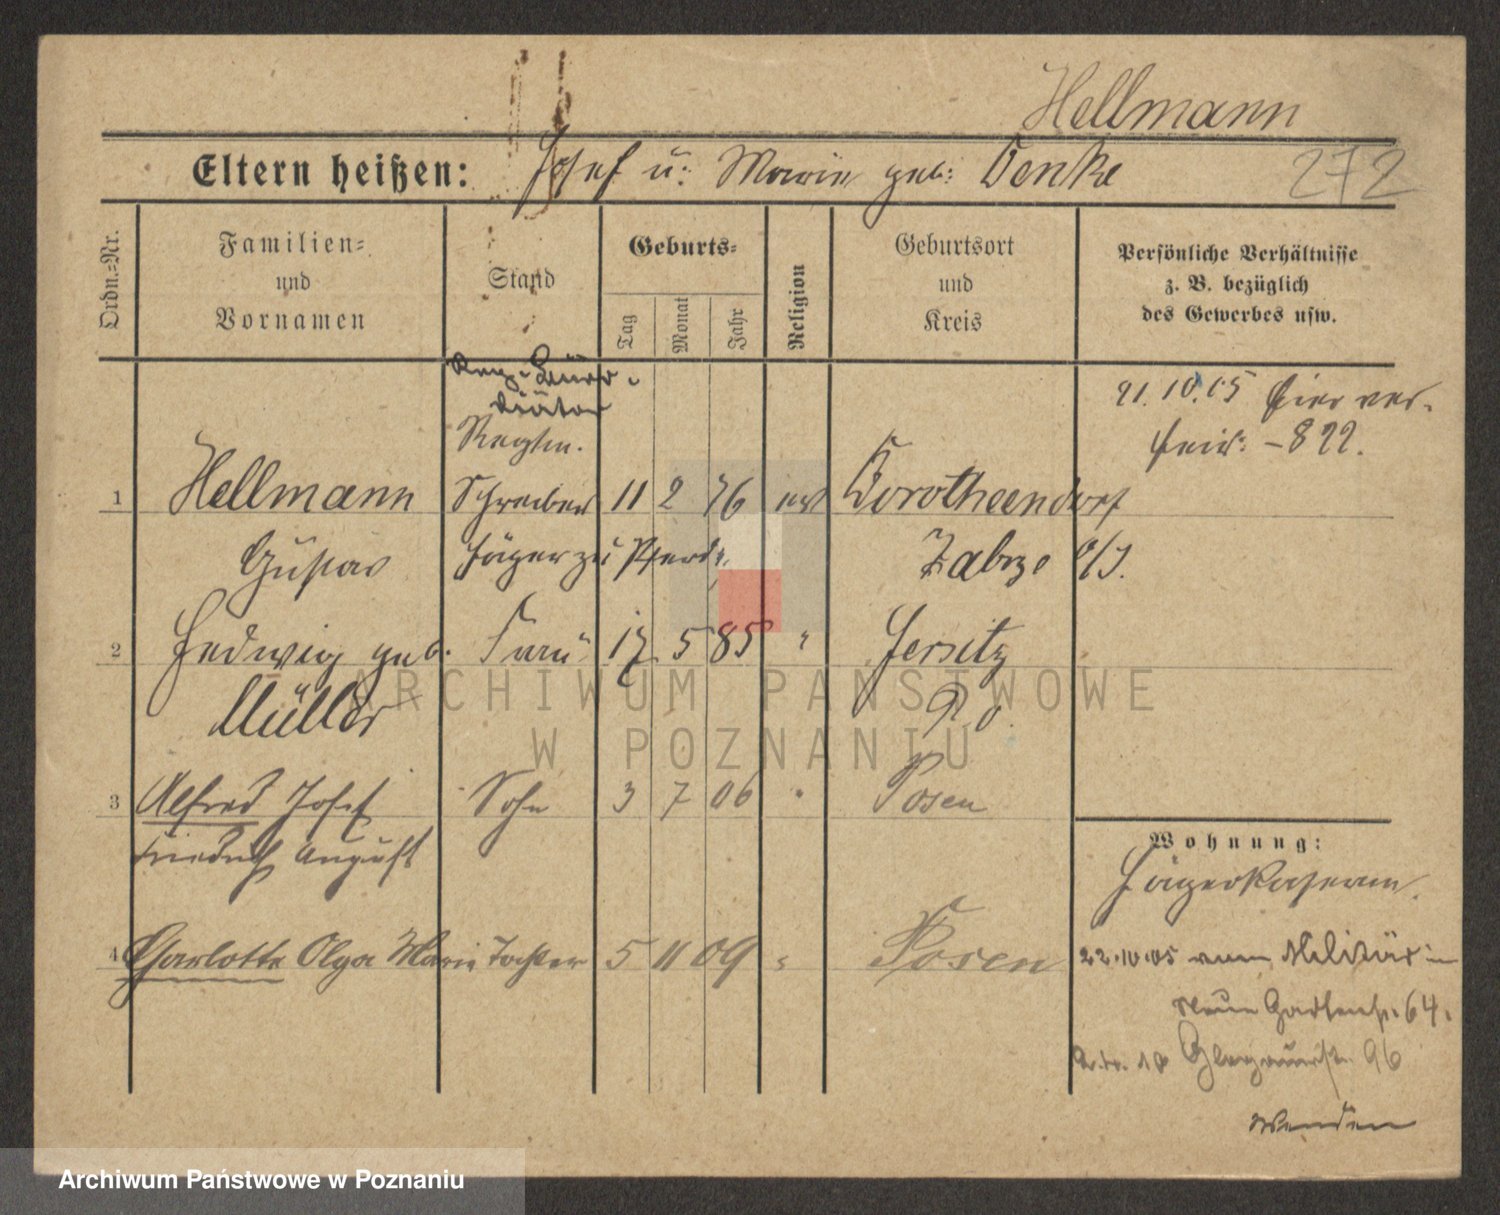 Hellmann
Eltern heißen: Josef u: Marie geb: Denke
272
Ordn.=Nr.
Familien=
und
Vornamen
Stand
Geburts=
Tag
Monat
Jahr
Religion
Geburtsort
und
Kreis
Persönliche Verhältnisse
z. B. bezüglich
des Gewerbes usw.
diätar
Regtm.
21.10.05 hier ver-
heir: -822.
1 Hellmann Schreiber 11 2 76 ev Dorotheendorf
Gustav Jäger zu Pferde Zabrze O/S.
2 Hedwig geb. Frau 17 5 85 " Jersitz
Müller P. O.
3 Alfred Josef Sohn 3 7 06 " Posen
Friedrich August
Wohnung:
Jägerkasern.
4 Charlotte Olga Marie Tochter 5 11 09 " Posen
22.10.05 vom Militär
Neue Gartenstr. 64.
Glogauerstr. 96
Wenden
ARCHIWUM PAŃSTWOWE
W POZNANIU
Archiwum Państwowe w Poznaniu